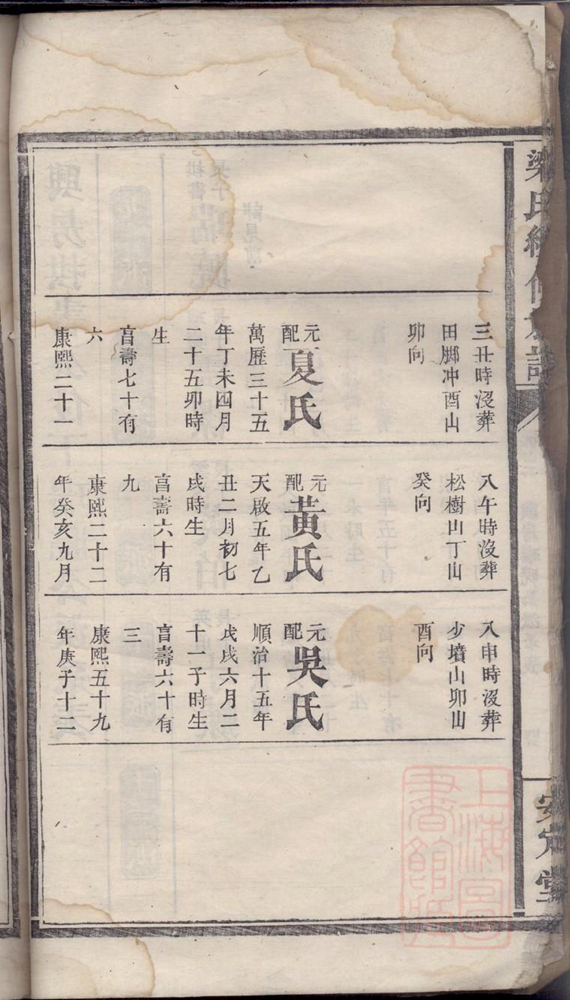 梁氏續修族譜
三丑時沒葬
田腳冲酉山
卯向
元配夏氏
萬歷三十五
年丁未四月
二十五卯時
生
亯壽七十有
六
康熙二十一
八午時沒葬
松樹山丁山
癸向
元配黃氏
天啟五年乙
丑二月初七
戌時生
亯壽六十有
九
康熙二十二
年癸亥九月
入申時沒葬
少墳山卯山
酉向
元配吳氏
順治十五年
戊戌六月二
十一子時生
亯壽六十有
三
康熙五十九
年庚子十二
安定堂
上海圖
書館藏